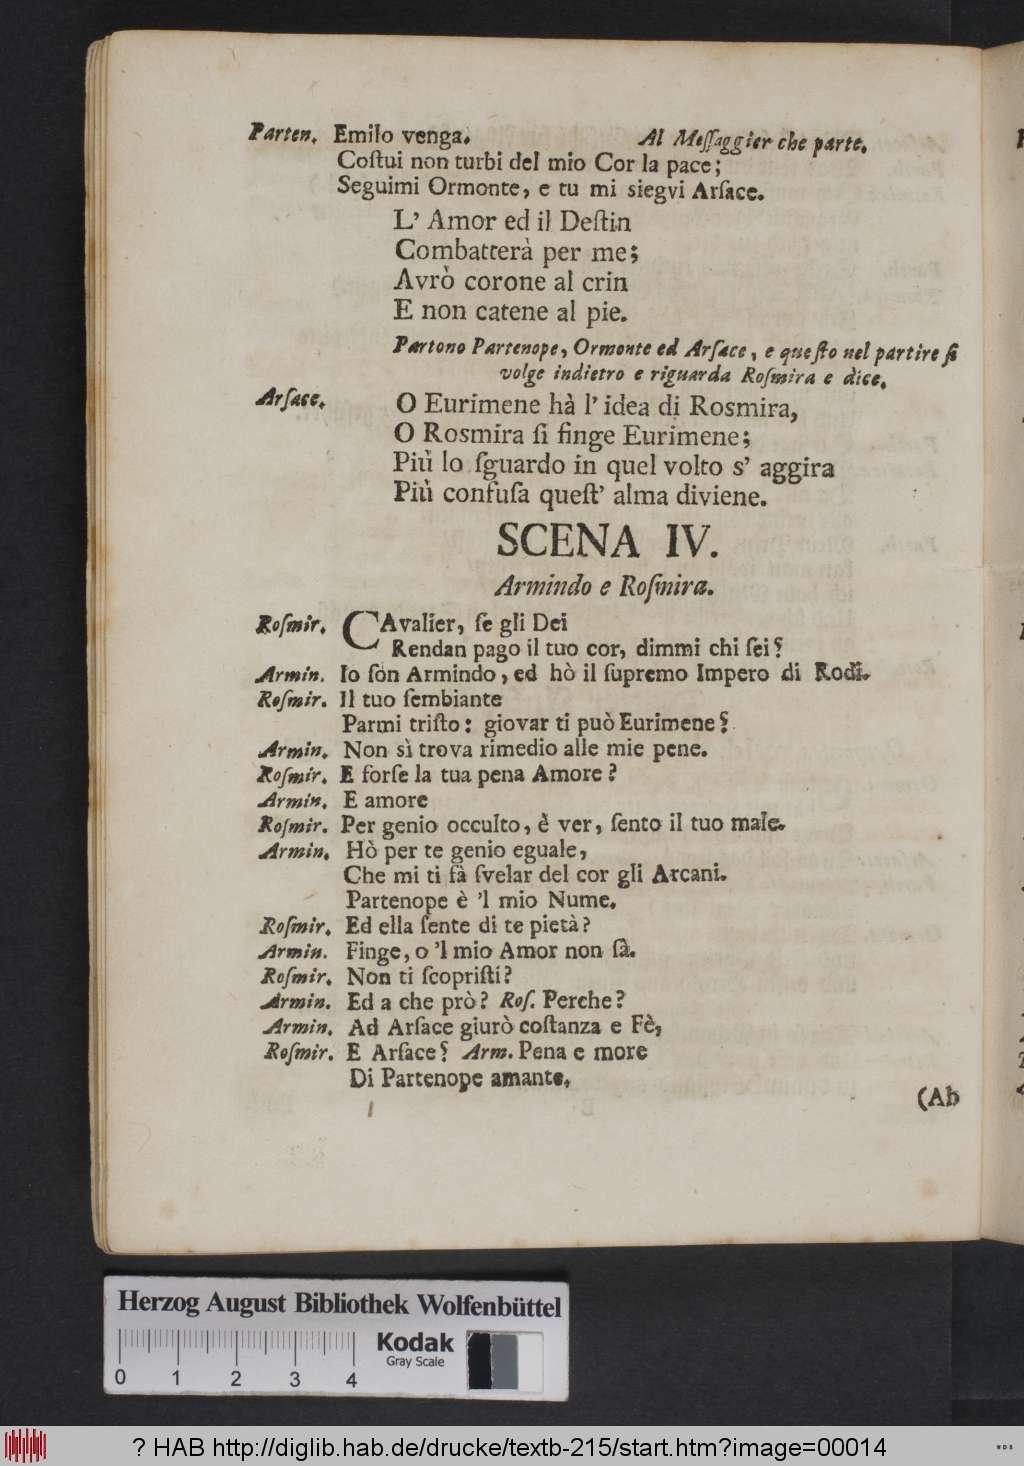 Parten. Emilo venga. Al Meſſaggier che parte.
Coſtui non turbi del mio Cor la pace;
Seguimi Ormonte, e tu mi siegvi Arſace.
L' Amor ed il Deſtin
Combatterà per me;
Avrò corone al crin
E non catene al pie.
Partono Partenope, Ormonte ed Arſace, e queſto nel partire ſi
volge indietro e riguarda Roſmira e dice.
Arſace. O Eurimene hà l' idea di Rosmira,
O Rosmira ſi finge Eurimene;
Più lo ſguardo in quel volto s' aggira
Più confuſa queſt' alma diviene.
SCENA IV.
Armindo e Roſmira.
Roſmir. CAvalier, ſe gli Dei
Rendan pago il tuo cor, dimmi chi ſei?
Armin. Io ſon Armindo, ed hò il ſupremo Impero di Rodi.
Roſmir. Il tuo ſembiante
Parmi triſto: giovar ti può Eurimene?
Armin. Non sì trova rimedio alle mie pene.
Roſmir. E forſe la tua pena Amore?
Armin. E amore
Roſmir. Per genio occulto, è ver, ſento il tuo male.
Armin. Hò per te genio eguale,
Che mi ti fà ſvelar del cor gli Arcani.
Partenope è 'l mio Nume.
Roſmir. Ed ella ſente di te pietà?
Armin. Finge, o 'l mio Amor non ſà.
Roſmir. Non ti ſcopriſti?
Armin. Ed a che prò? Roſ. Perche?
Armin. Ad Arſace giurò coſtanza e Fè,
Roſmir. E Arſace? Arm. Pena e more
Di Partenope amante.
(Ab
Herzog August Bibliothek Wolfenbüttel
Kodak
Gray Scale
0 1 2 3 4
? HAB http://diglib.hab.de/drucke/textb-215/start.htm?image=00014